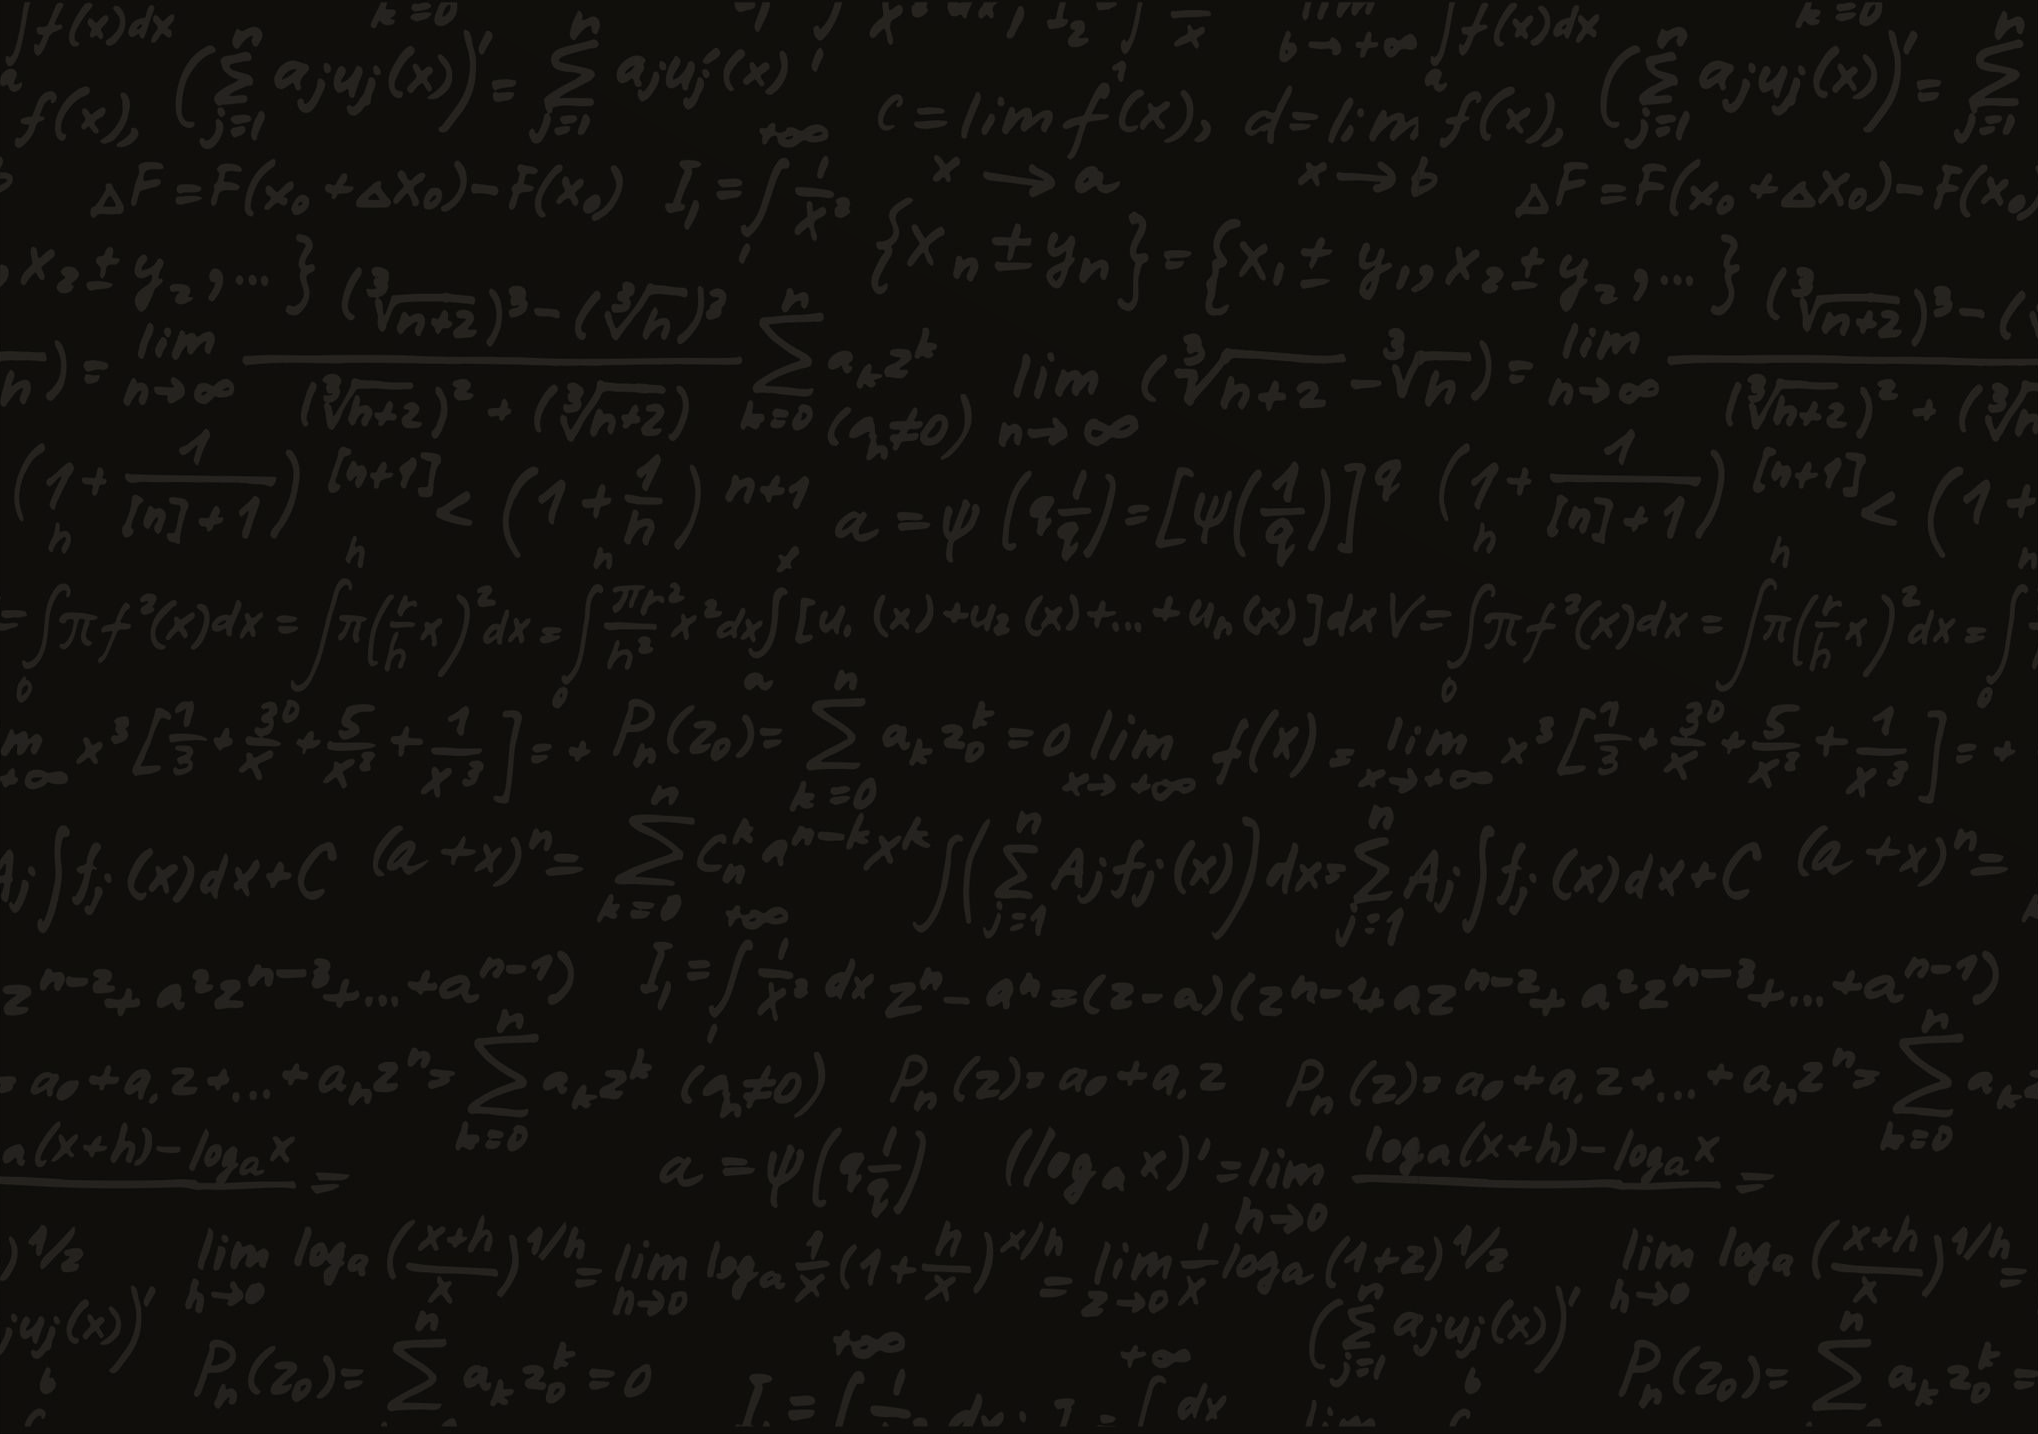 ∫ₐ f(x)dx k=0 x dx, I₂ = ∫ x lim b→+∞ ∫ₐ f(x)dx k=0
f(x), (∑ⁿⱼ₌₁ aⱼuⱼ(x))' = ∑ⁿⱼ₌₁ aⱼuⱼ'(x) c = lim f(x), x→a d = lim f(x), x→b (∑ⁿⱼ₌₁ aⱼuⱼ(x))' = ∑ⁿⱼ₌₁
ΔF = F(x₀ + Δx₀) − F(x₀) I₁ = ∫₁^+∞ 1/x³ ΔF = F(x₀ + Δx₀) − F(x₀)
x₂ ± y₂, ... } {xₙ ± yₙ} = {x₁ ± y₁, x₂ ± y₂, ... }
n) = lim n→∞ ((∛n+2)³ − (∛n)³)/((∛n+2)² + (∛n+2)) ∑ⁿₖ₌₀ aₖzᵏ (aₙ≠0) lim n→∞ (∛n+2 − ∛n) = lim n→∞ ((∛n+2)³ − (/((∛n+2)² + (∛n
(1 + 1/([n]+1))^[n+1] < (1 + 1/n)^n+1 a = ψ(q 1/q) = [ψ(1/q)]^q (1 + 1/([n]+1))^[n+1] < (1 +
= ∫₀ʰ πf²(x)dx = ∫ʰ π(r/h x)²dx = ∫₀ʰ πr²/h² x²dx ∫ₐˣ [u₁(x) + u₂(x) + ... + uₙ(x)]dx V = ∫₀ʰ πf²(x)dx = ∫ʰ π(r/h x)²dx = ∫₀
m +∞ x³[1/3 + 30/x + 5/x² + 1/x³] = + Pₙ(z₀) = ∑ⁿₖ₌₀ aₖz₀ᵏ = 0 lim x→+∞ f(x) = lim x→+∞ x³[1/3 + 30/x + 5/x² + 1/x³] = +
Aⱼ∫fⱼ(x)dx + C (a + x)ⁿ = ∑ⁿₖ₌₀ Cₙᵏ aⁿ⁻ᵏxᵏ ∫(∑ⁿⱼ₌₁ Aⱼfⱼ(x))dx = ∑ⁿⱼ₌₁ Aⱼ∫fⱼ(x)dx + C (a + x)ⁿ =
zⁿ⁻² + a²zⁿ⁻³ + ... + aⁿ⁻¹) I₁ = ∫₁^+∞ 1/x³ dx zⁿ − aⁿ = (z − a)(zⁿ⁻¹ + azⁿ⁻² + a²zⁿ⁻³ + ... + aⁿ⁻¹)
= a₀ + a₁z + ... + aₙzⁿ = ∑ⁿₖ₌₀ aₖzᵏ (aₙ≠0) Pₙ(z) = a₀ + a₁z Pₙ(z) = a₀ + a₁z + ... + aₙzⁿ = ∑ⁿₖ₌₀ aₖ
a(x+h) − logₐx = a = ψ(q 1/q) (logₐx)' = lim h→0 (logₐ(x+h) − logₐx) =
)^1/z lim h→0 logₐ((x+h)/x)^1/h = lim h→0 logₐ 1/x (1 + h/x)^x/h = lim z→0 1/x logₐ(1+z)^1/z lim h→0 logₐ((x+h)/x)^1/h =
ⱼuⱼ(x))' Pₙ(z₀) = ∑ⁿ aₖz₀ᵏ = 0 (∑ⁿⱼ₌₁ aⱼuⱼ(x))' Pₙ(z₀) = ∑ⁿ aₖz₀ᵏ =
b I = ∫^+∞ 1 dx = ∫^+∞ dx lim b